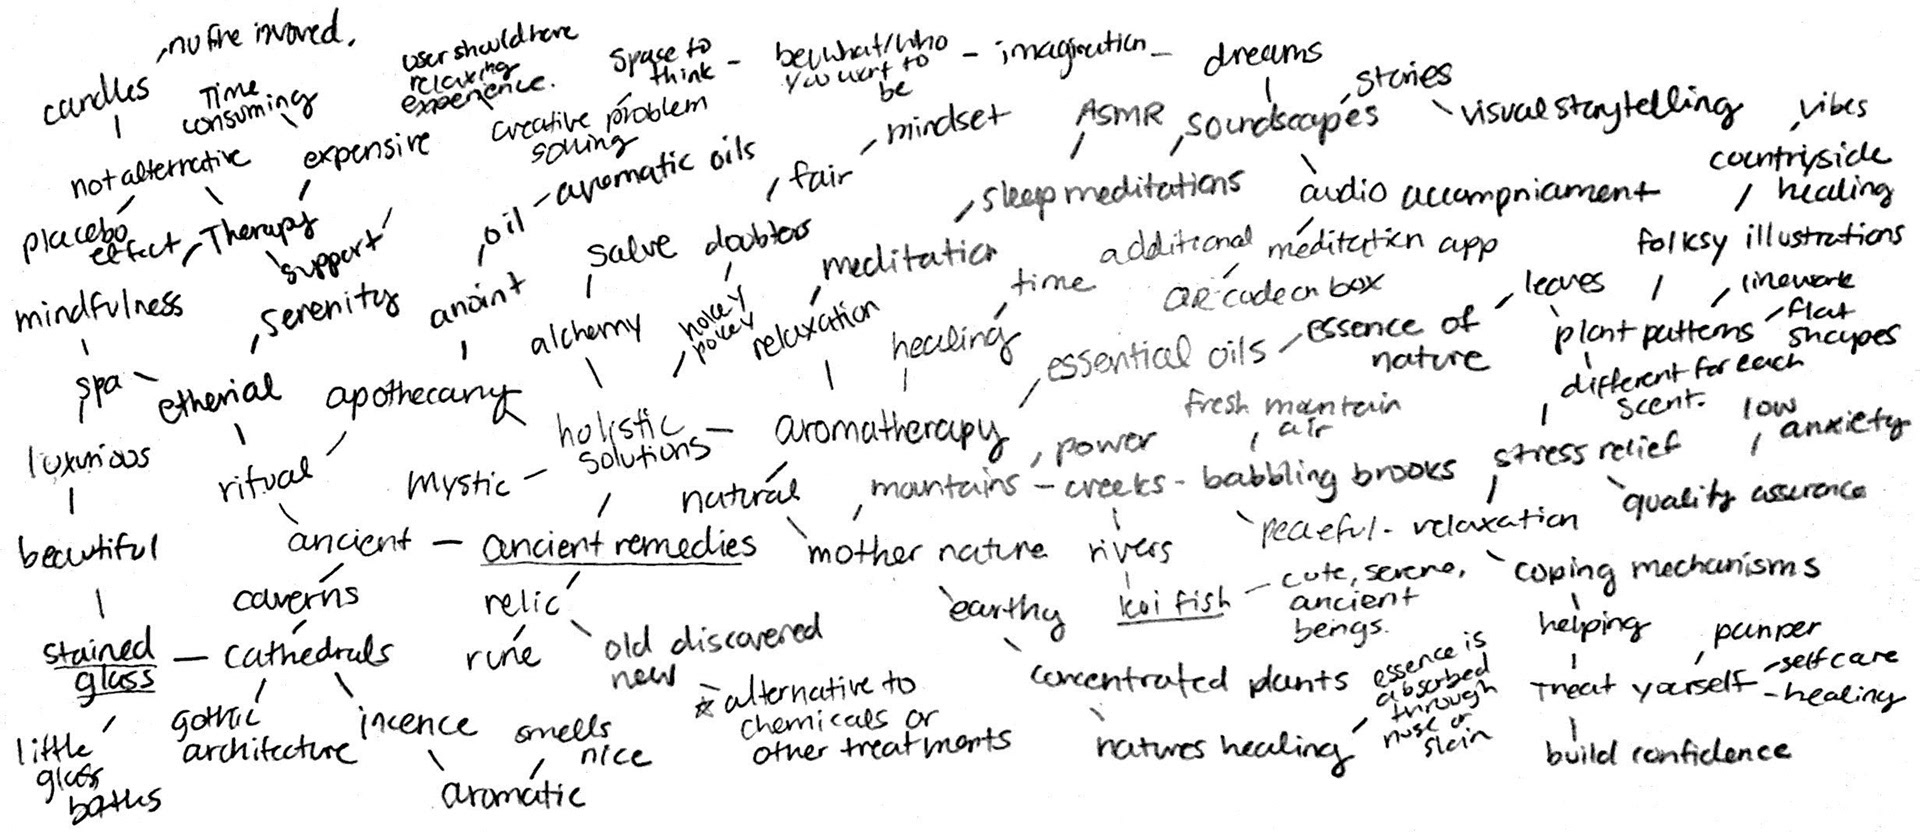 no fire involved.
candles
Time
consuming
user should have
relaxing
experience.
space to
think
be what/who
you want to
be
imagination
dreams
stories
visual storytelling
vibes
not alternative
expensive
creative problem
solving
aromatic oils
mindset
fair
ASMR
soundscapes
countryside
healing
placebo
effect
Therapy
support
oil
salve
doubters
sleep meditations
audio accompniament
folksy illustrations
mindfulness
serenity
anoint
meditation
time
additional meditation app
QR code on box
leaves
linework
flat
shapes
spa
etherial
apothecary
alchemy
hokey
pokey
relaxation
healing
essential oils
essence of
nature
plant patterns
different for each
scent.
luxurious
ritual
mystic
holistic
solutions
aromatherapy
power
fresh mountain
air
stress relief
low
anxiety
beautiful
ancient
ancient remedies
natural
mountains
creeks
babbling brooks
quality assurance
mother nature
rivers
peaceful - relaxation
coping mechanisms
caverns
relic
earthy
koi fish
cute, serene,
ancient
beings.
helping
pamper
stained
glass
cathedrals
rune
old discovered
new
concentrated plants
essence is
absorbed
through
nose or
skin
Treat yourself
self care
healing
little
glass
gothic
architecture
incence
smells
nice
aromatic
* alternative to
chemicals or
other treatments
natures healing
build confidence